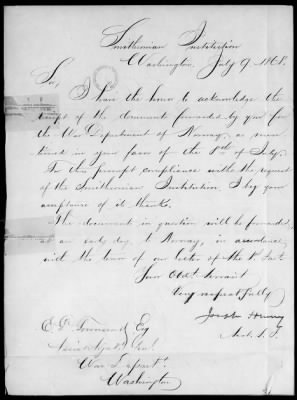 Smithsonian Institution
Washington, July 9 1868.
Sir,
I have the honor to acknowledge the
receipt of the document forwarded by you for
the War Department of Norway, as men-
tioned in your favor of the 8th of July.
For this prompt compliance with the request
of the Smithsonian Institution, I beg you
acceptance of its thanks.
The document in question will be forwarded,
at an early day, to Norway, in accordance
with the tenor of our letter of the 1st
Your Obdt. servant
Very respectfully
Joseph Henry
Sect. S. I.
E. D. Townsend Esq
Genl.
War Depart.
Washington